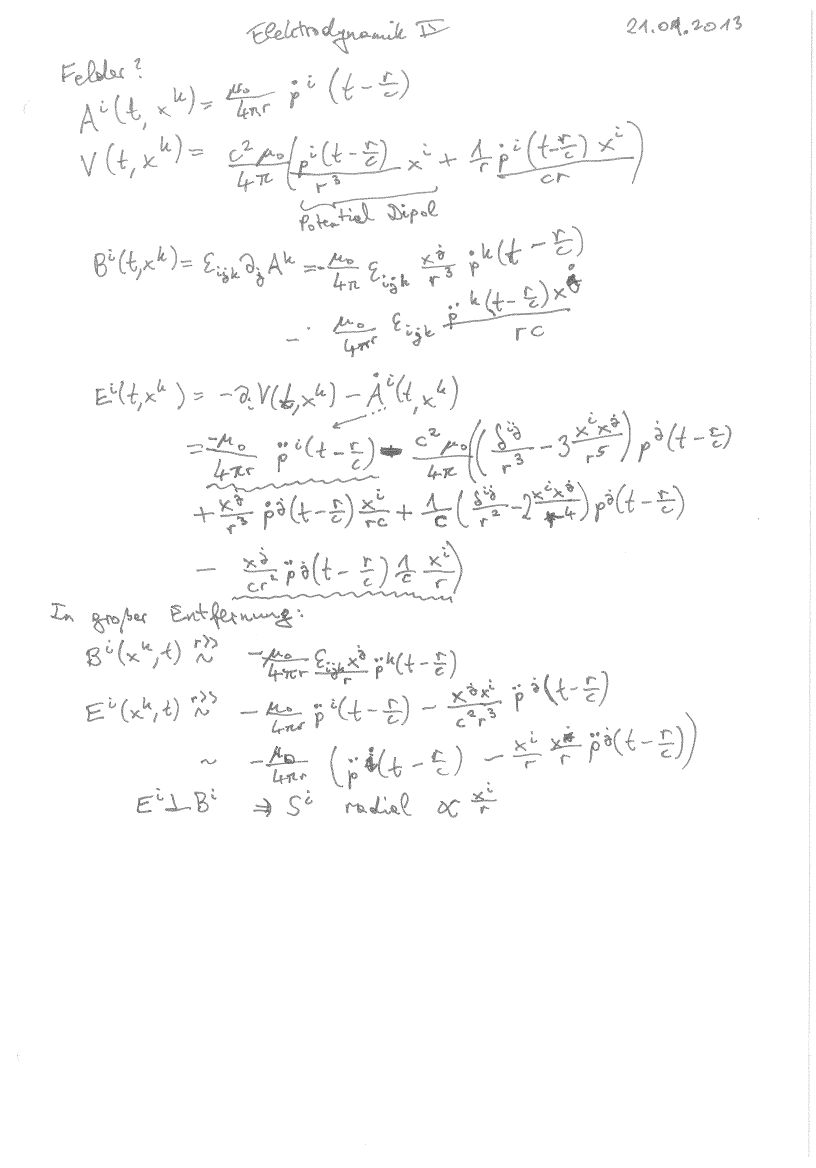 Elektrodynamik II 21.01.2013
Felder?
A^i(t, x^k) = μ₀/(4πr) ṗ^i (t - r/c)
V(t, x^k) = c²μ₀/(4π) (p^i(t - r/c)/r³ x^i + 1/r ṗ^i(t - r/c) x^i/(cr))
Potential Dipol
B^i(t,x^k) = ε_ijk ∂_j A^k = -μ₀/(4π) ε_ijk x^j/r³ ṗ^k(t - r/c)
- μ₀/(4πr) ε_ijk p̈^k(t - r/c) x^j/(rc)
E^i(t,x^k) = -∂_i V(t,x^k) - Ȧ^i(t,x^k)
= -μ₀/(4πr) p̈^i(t - r/c) - c²μ₀/(4π) ((δ^ij/r³ - 3 x^i x^j/r⁵) p^j(t - r/c)
+ x^j/r³ ṗ^j(t - r/c) x^i/(rc) + 1/c (δ^ij/r² - 2 x^i x^j/r⁴) p^j(t - r/c)
- x^j/(cr²) p̈^j(t - r/c) 1/c x^i/r)
In großer Entfernung:
B^i(x^k,t) ~^{r>>} -μ₀/(4πr) ε_ijk x^j/r p̈^k(t - r/c)
E^i(x^k,t) ~^{r>>} -μ₀/(4πr) p̈^i(t - r/c) - x^j x^i/(c²r³) p̈^j(t - r/c)
~ -μ₀/(4πr) (p̈^i(t - r/c) - x^i/r x^j/r p̈^j(t - r/c))
E^i ⊥ B^i ⇒ S^i radial ∝ x^i/r